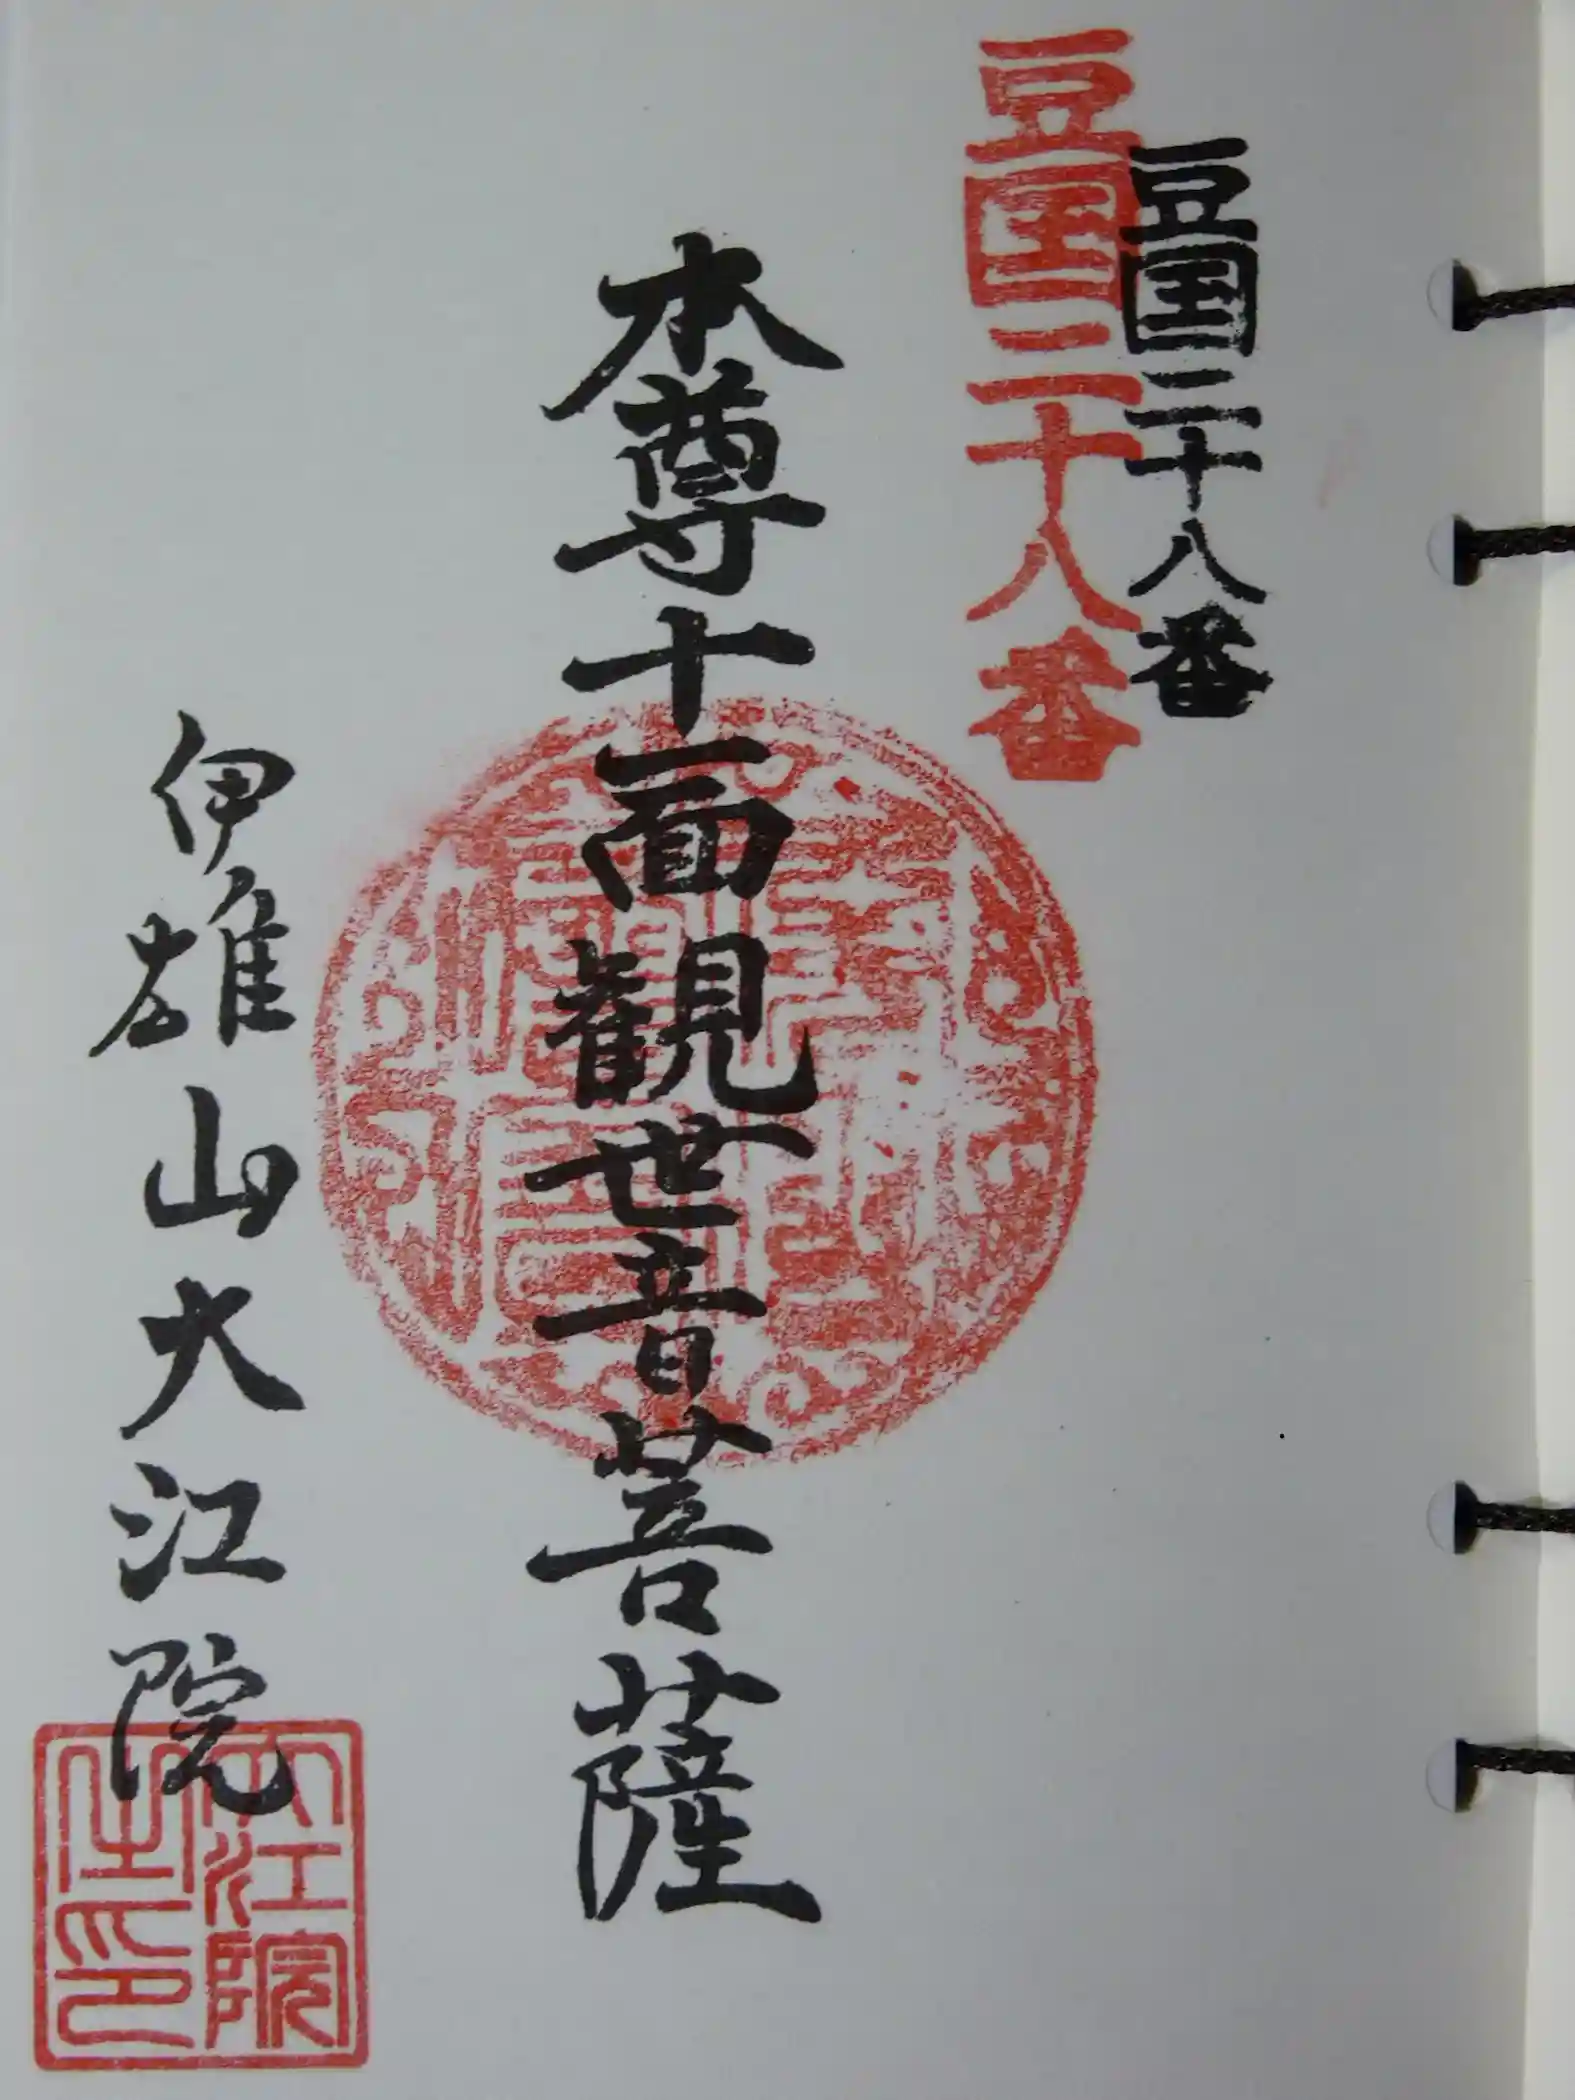 豆国二十八番
豆国二十八番
本尊十一面観世音菩薩
伊雄山大江院
大江院
之印